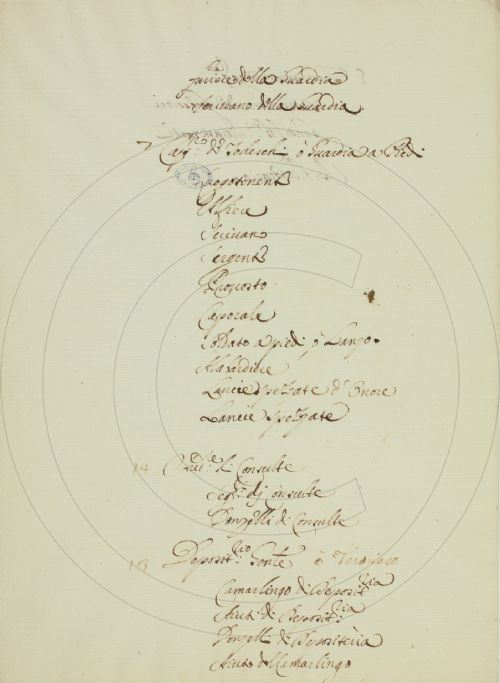 Furiere della Guardia
Scrivano della Guardia
7 Cap.no de Tedeschi ò Guardia a Piedi
Luogotenente
Alfiere
Scrivano
Sergente
Proposto
Caporale
Soldato a piedi ò Lanzo
Alabardiere
Lancie spezzate d'Onore
Lancie spezzate
14 Aud.re di Consulte
Seg.rio di Consulte
Donzelli di Consulte
15 Deposit.rio Gente ò Tesoriere
Camarlingo di Deposit.ria
Aiuti di Deposit.ria
Donzelli di Depositeria
Aiuto del Camarlingo